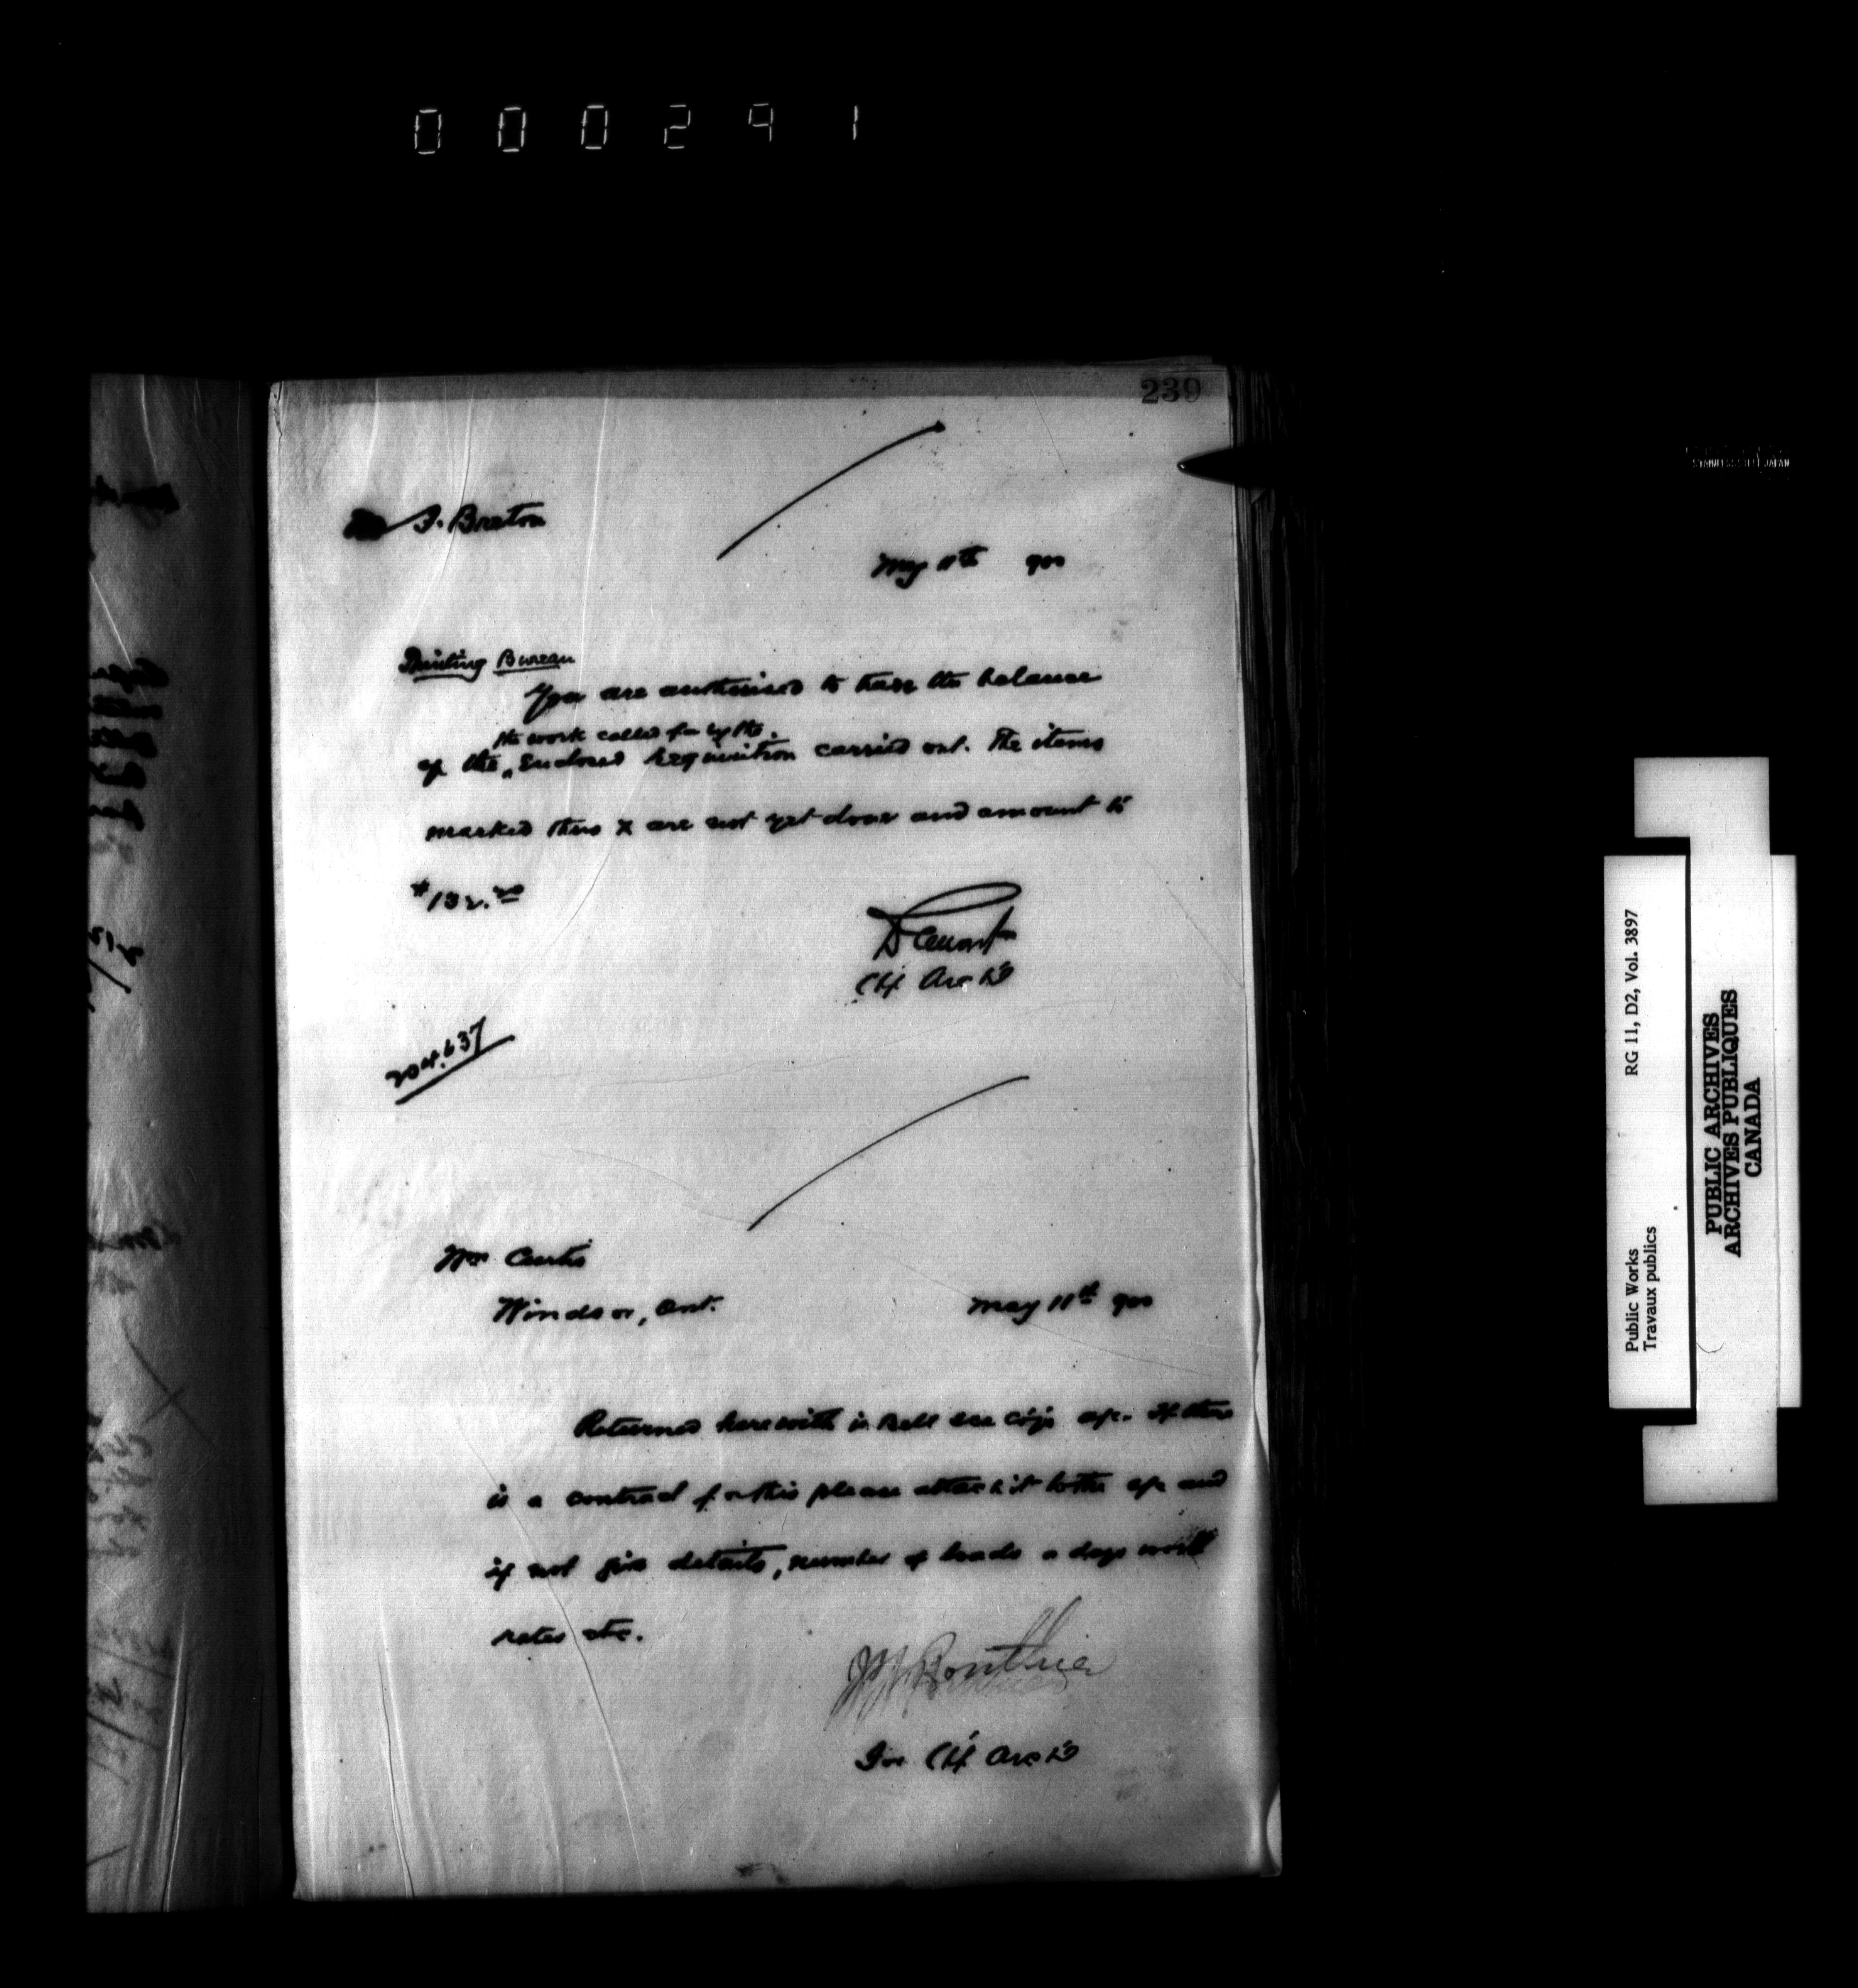 000291
239
J. Breton
May 11th 900
Printing Bureau
You are authorised to have the balance
the work called for by the
of the enclosed requisition carried out. The items
marked thus X are not yet done and amount to
$132.
D Ewart
Ch. Arct
204.637
Wm Curtis
Windsor, Ont.
May 11th 900
Returned herewith is Bell Ice Co's a/c. If there
is a contract for this please attach it to the a/c and
if not give details, number of loads a days work
rates etc.
For Ch. Arct
STAINLESS STEEL JAPAN
RG 11, D2, Vol. 3897
Public Works
Travaux publics
PUBLIC ARCHIVES
ARCHIVES PUBLIQUES
CANADA